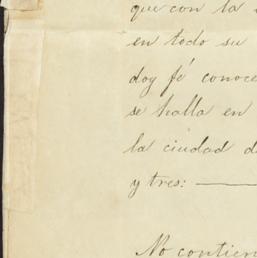 que con la
en todo su
doy fé conoce
se halla en
la ciudad d
y tres:
No contien